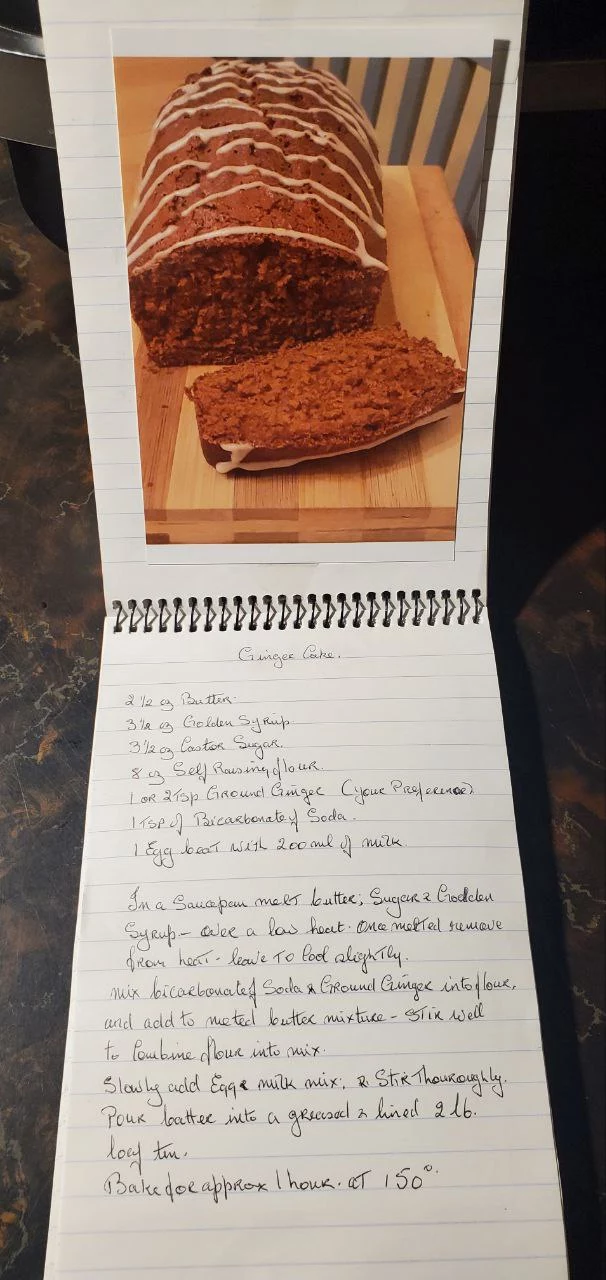 Ginger Cake.
2 1/2 oz Butter.
3 1/2 oz Golden Syrup
3 1/2 oz Castor Sugar.
8 oz Self Raising flour.
1 or 2 Tsp Ground Ginger (your Preference)
1 Tsp of Bicarbonate of Soda.
1 Egg beat with 200 ml of milk.
In a Saucepan melt butter; Sugar & Goolden
Syrup - over a low heat. Once melted remove
from heat - leave To Cool slightly.
mix bicarbonate of Soda & Ground Ginger into flour,
and add to meted butter mixture - STir well
to Combine flour into mix.
Slowly add Egg & milk mix; & STir Thouroughly.
Pour batter into a greased & lined 2 lb.
loaf tin.
Bake for approx 1 hour. aT 150°.